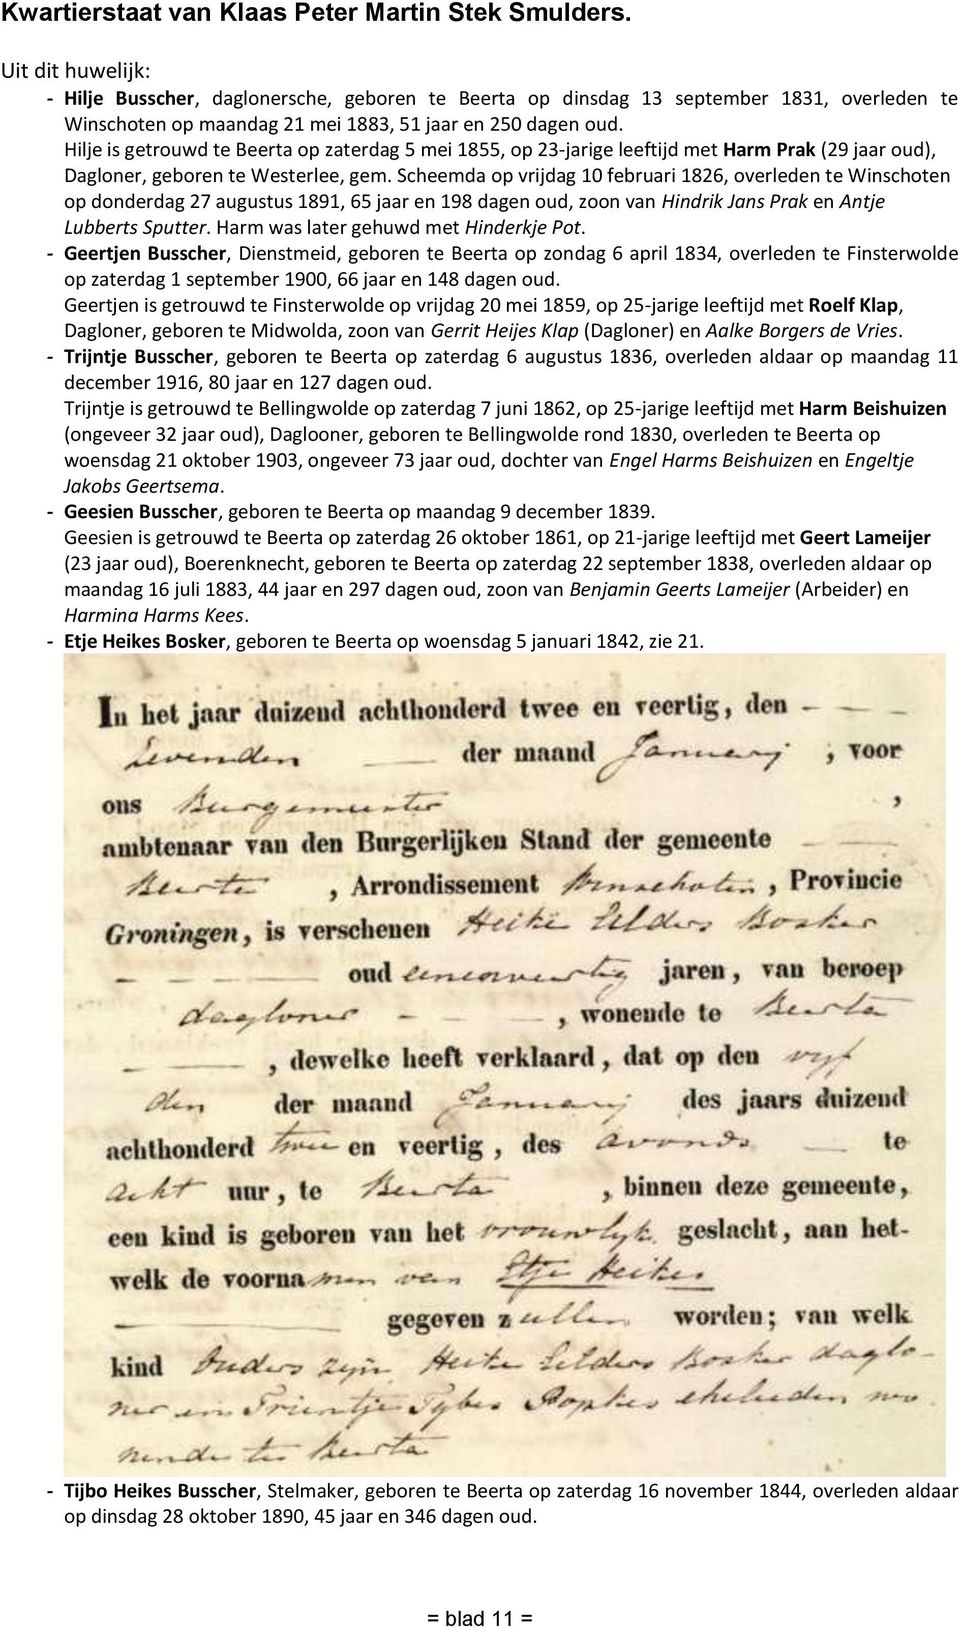 Kwartierstaat van Klaas Peter Martin Stek Smulders.
Uit dit huwelijk:
- Hilje Busscher, daglonersche, geboren te Beerta op dinsdag 13 september 1831, overleden te
Winschoten op maandag 21 mei 1883, 51 jaar en 250 dagen oud.
Hilje is getrouwd te Beerta op zaterdag 5 mei 1855, op 23-jarige leeftijd met Harm Prak (29 jaar oud),
Dagloner, geboren te Westerlee, gem. Scheemda op vrijdag 10 februari 1826, overleden te Winschoten
op donderdag 27 augustus 1891, 65 jaar en 198 dagen oud, zoon van Hindrik Jans Prak en Antje
Lubberts Sputter. Harm was later gehuwd met Hinderkje Pot.
- Geertjen Busscher, Dienstmeid, geboren te Beerta op zondag 6 april 1834, overleden te Finsterwolde
op zaterdag 1 september 1900, 66 jaar en 148 dagen oud.
Geertjen is getrouwd te Finsterwolde op vrijdag 20 mei 1859, op 25-jarige leeftijd met Roelf Klap,
Dagloner, geboren te Midwolda, zoon van Gerrit Heijes Klap (Dagloner) en Aalke Borgers de Vries.
- Trijntje Busscher, geboren te Beerta op zaterdag 6 augustus 1836, overleden aldaar op maandag 11
december 1916, 80 jaar en 127 dagen oud.
Trijntje is getrouwd te Bellingwolde op zaterdag 7 juni 1862, op 25-jarige leeftijd met Harm Beishuizen
(ongeveer 32 jaar oud), Daglooner, geboren te Bellingwolde rond 1830, overleden te Beerta op
woensdag 21 oktober 1903, ongeveer 73 jaar oud, dochter van Engel Harms Beishuizen en Engeltje
Jakobs Geertsema.
- Geesien Busscher, geboren te Beerta op maandag 9 december 1839.
Geesien is getrouwd te Beerta op zaterdag 26 oktober 1861, op 21-jarige leeftijd met Geert Lameijer
(23 jaar oud), Boerenknecht, geboren te Beerta op zaterdag 22 september 1838, overleden aldaar op
maandag 16 juli 1883, 44 jaar en 297 dagen oud, zoon van Benjamin Geerts Lameijer (Arbeider) en
Harmina Harms Kees.
- Etje Heikes Bosker, geboren te Beerta op woensdag 5 januari 1842, zie 21.
In het jaar duizend achthonderd twee en veertig, den – – –
zevenden — der maand Januarij , voor
ons Burgemeester ,
ambtenaar van den Burgerlijken Stand der gemeente
Beerta , Arrondissement Winschoten, Provincie
Groningen, is verschenen Heike Eilders Bosker
– – – oud eenenveertig jaren, van beroep
dagloner – – – , wonende te Beerta
– — , dewelke heeft verklaard, dat op den vijf
den der maand Januarij des jaars duizend
achthonderd twee en veertig, des avonds — te
acht uur, te Beerta , binnen deze gemeente,
een kind is geboren van het vrouwlijk geslacht, aan het-
welk de voornamen van Etje Heikes
— gegeven zullen worden; van welk
kind Ouders zijn Heike Eilders Bosker daglo-
ner en Trientje Tybes Popkes eheluden wo
nende te Beerta
- Tijbo Heikes Busscher, Stelmaker, geboren te Beerta op zaterdag 16 november 1844, overleden aldaar
op dinsdag 28 oktober 1890, 45 jaar en 346 dagen oud.
= blad 11 =